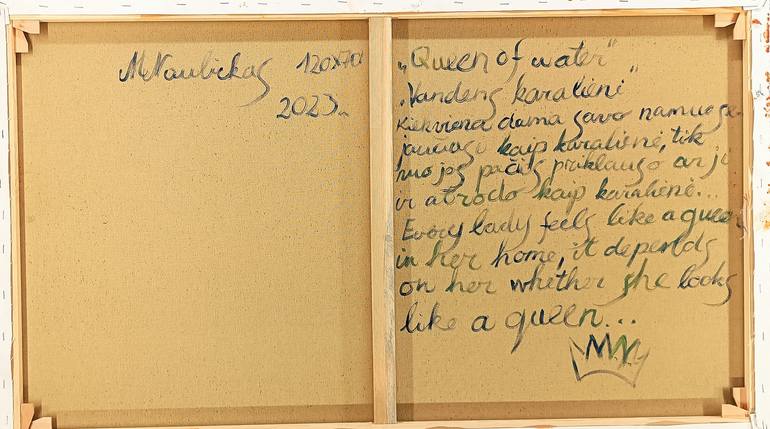 MNaubickas 120x70
2023.
„Queen of water"
„Vandens karalienė"
Kiekviena dama savo namuose
jaučiasi kaip karalienė, tik
nuo jos pačios priklauso ar ji
ir atrodo kaip karalienė...
Every lady feels like a queen
in her home, it depends
on her whether she looks
like a queen...
MN